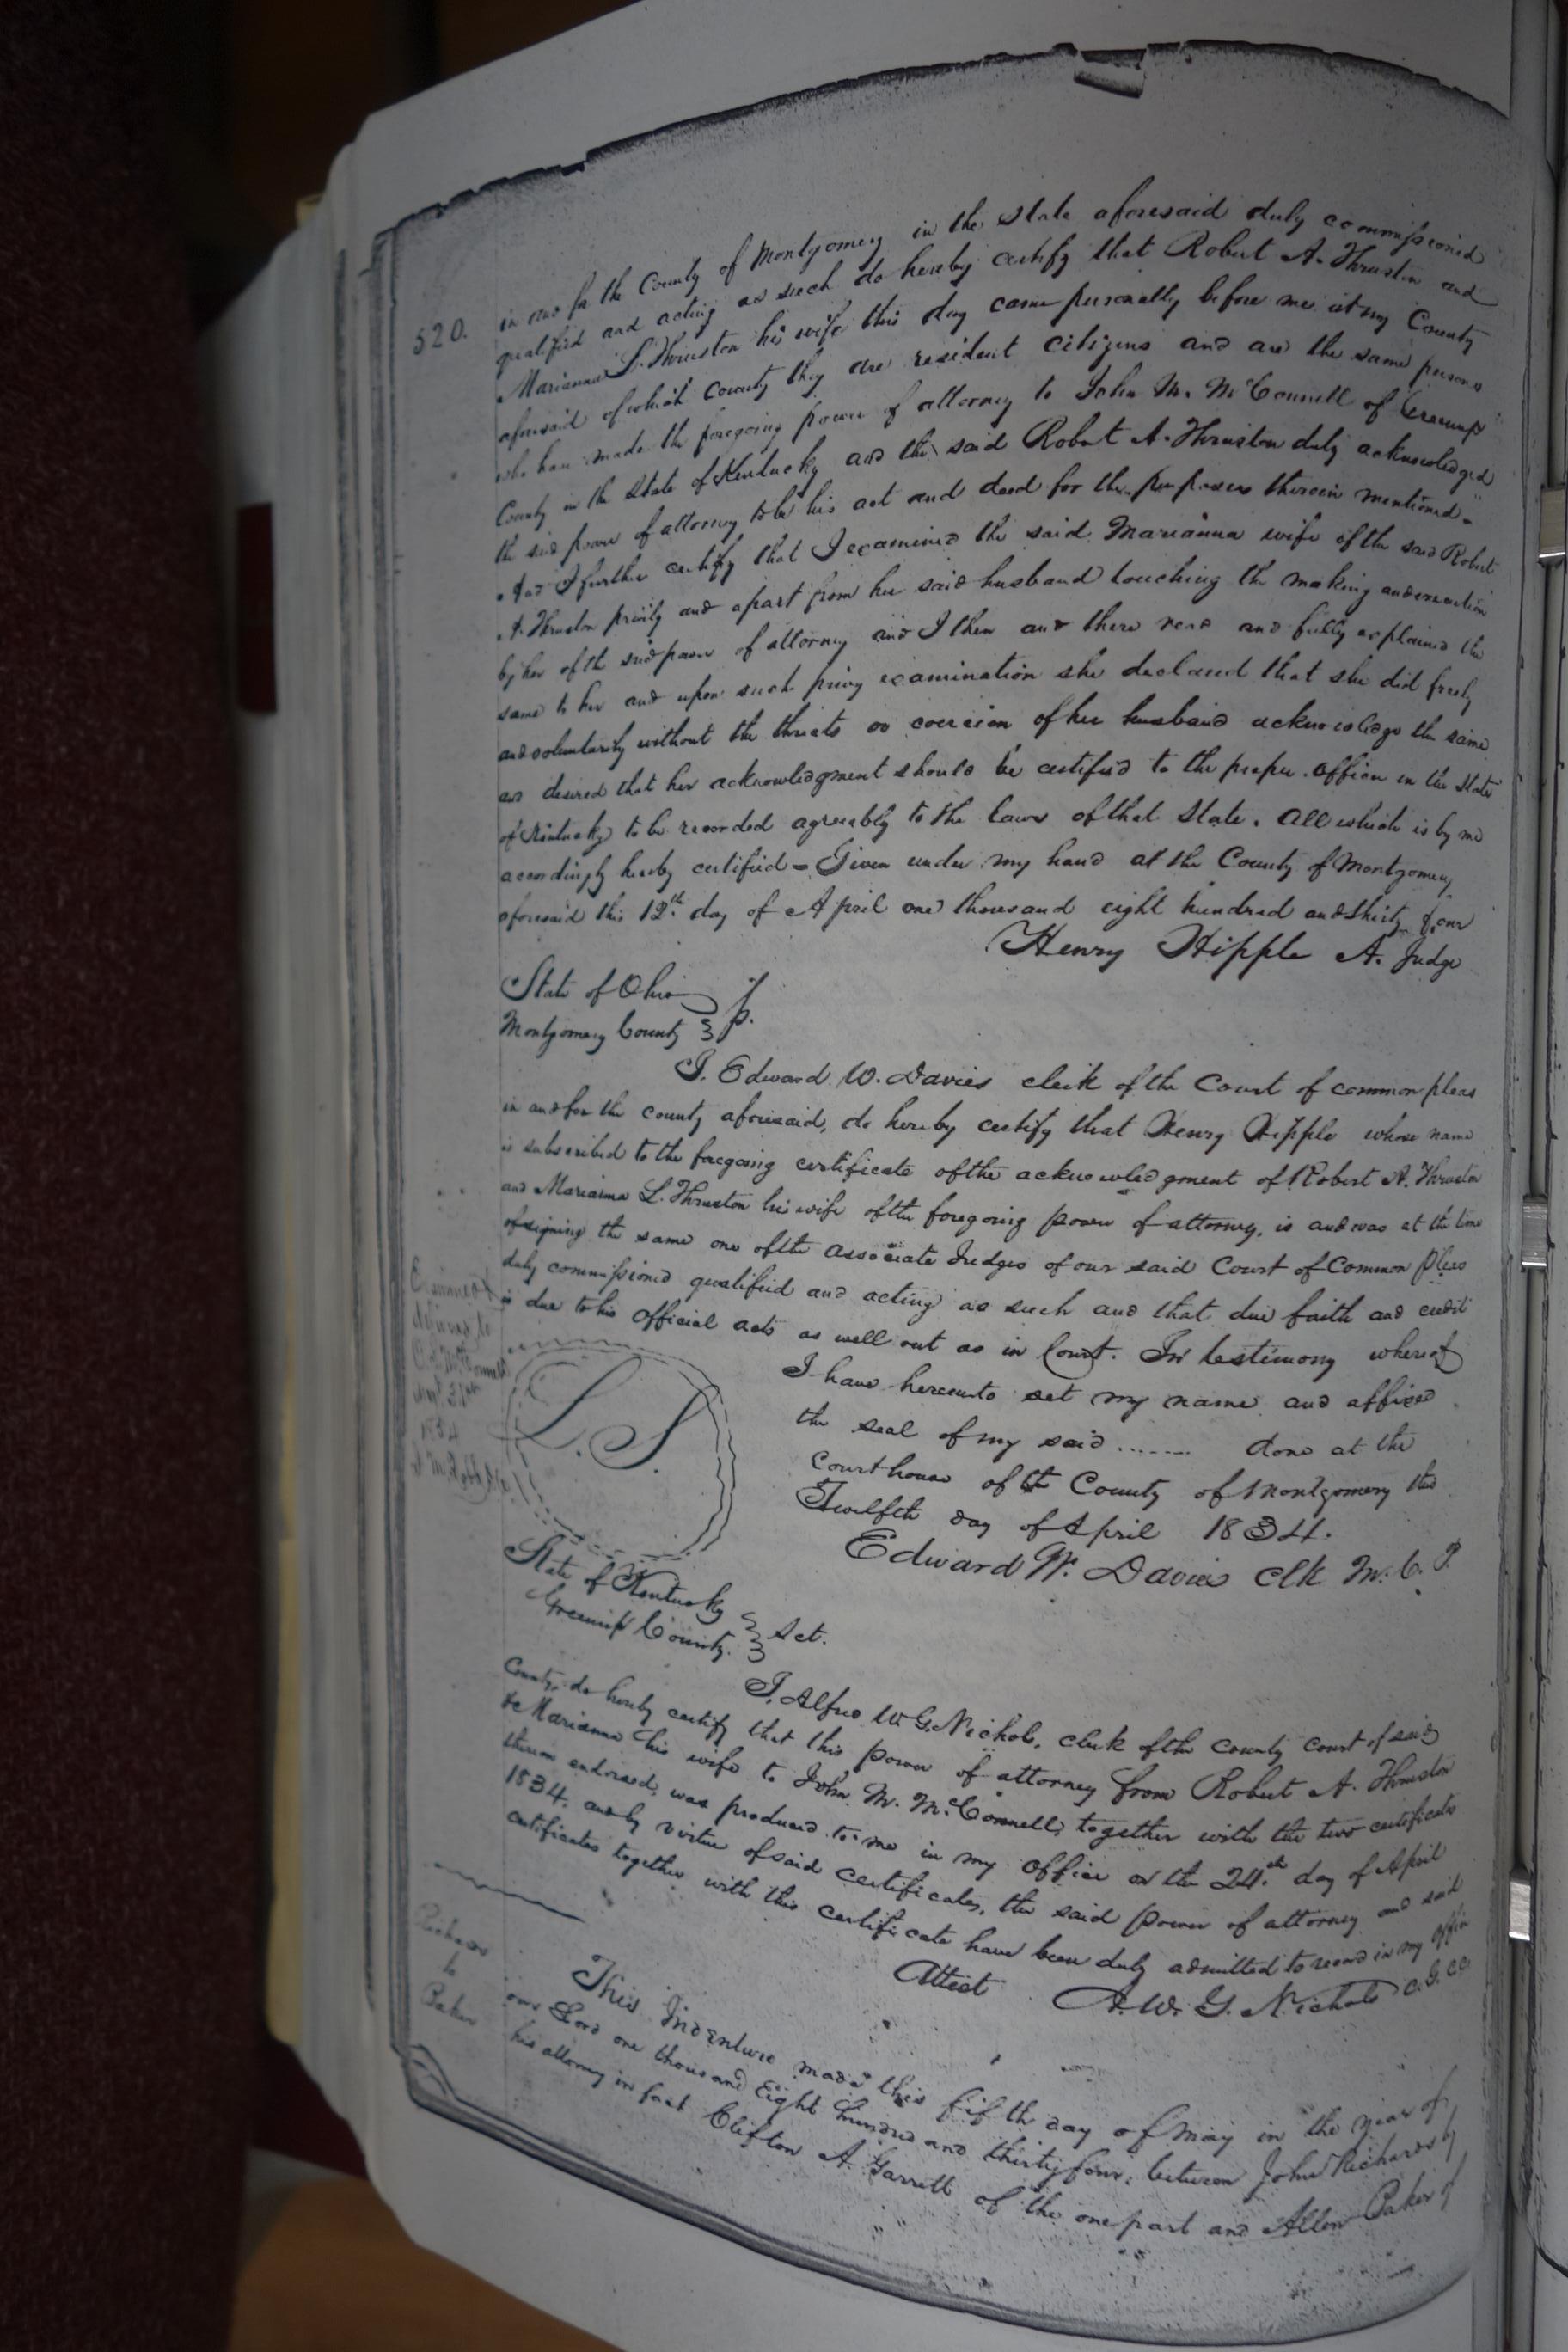 520.
in and for the County of Montgomery in the state aforesaid duly commissioned
qualified and acting as such do hereby certify that Robert A. Thruston and
Marianna L. Thruston his wife this day came personally before me at my County
aforesaid of which County they are resident citizens and are the same persons
who have made the foregoing power of attorney to John M. McConnell of Greenup
County in the State of Kentucky and the said Robert A. Thruston duly acknowledged
the said power of attorney to be his act and deed for the purposes therein mentioned =
And I further certify that I examined the said Marianna wife of the said Robert
A. Thruston privily and apart from her said husband touching the making and execution
by her of the said power of attorney and I then and there read and fully explained the
same to her and upon such privy examination she declared that she did freely
and voluntarily without the threats or coercion of her husband acknowledge the same
and desired that her acknowledgment should be certified to the proper office in the State
of Kentucky to be recorded agreeably to the laws of that State. All which is by me
accordingly hereby certified = Given under my hand at the County of Montgomery
aforesaid this 12th. day of April one thousand eight hundred and thirty four
Henry Hipple A. Judge
State of Ohio
Montgomery County
I, Edward W. Davies clerk of the Court of common pleas
in and for the county aforesaid, do hereby certify that Henry Hipple whose name
is subscribed to the foregoing certificate of the acknowledgment of Robert A. Thruston
and Marianna L. Thruston his wife of the foregoing power of attorney, is and was at the time
of signing the same one of the associate Judges of our said Court of Common Pleas
duly commissioned qualified and acting as such and that due faith and credit
is due to his official acts as well out as in Court. In testimony whereof
I have hereunto set my name and affixed
the seal of my said ....... done at the
Courthouse of the County of Montgomery this
Twelfth day of April 1834.
Edward W. Davies Clk M. C. P.
L. S.
Examined &
delivered to
McConnell
31st
1834
State of Kentucky
Greenup County. Sct.
I, Alfred W. G. Nichols, clerk of the county court of said
County, do hereby certify that this power of attorney from Robert A. Thruston
& Marianna his wife to John M. McConnell, together with the two certificates
thereon endorsed, was produced to me in my office on the 24.th day of April
1834. and by virtue of said certificates, the said power of attorney and said
certificates together with this certificate have been duly admitted to record in my office
Attest A. W. G. Nichols C. G. C. C.
Richards
to
Baker
This Indenture made this fifth day of May in the year of
our Lord one thousand Eight hundred and thirty four, between John Richards by
his attorney in fact Clifton A. Garrett of the one part and Allen Baker of